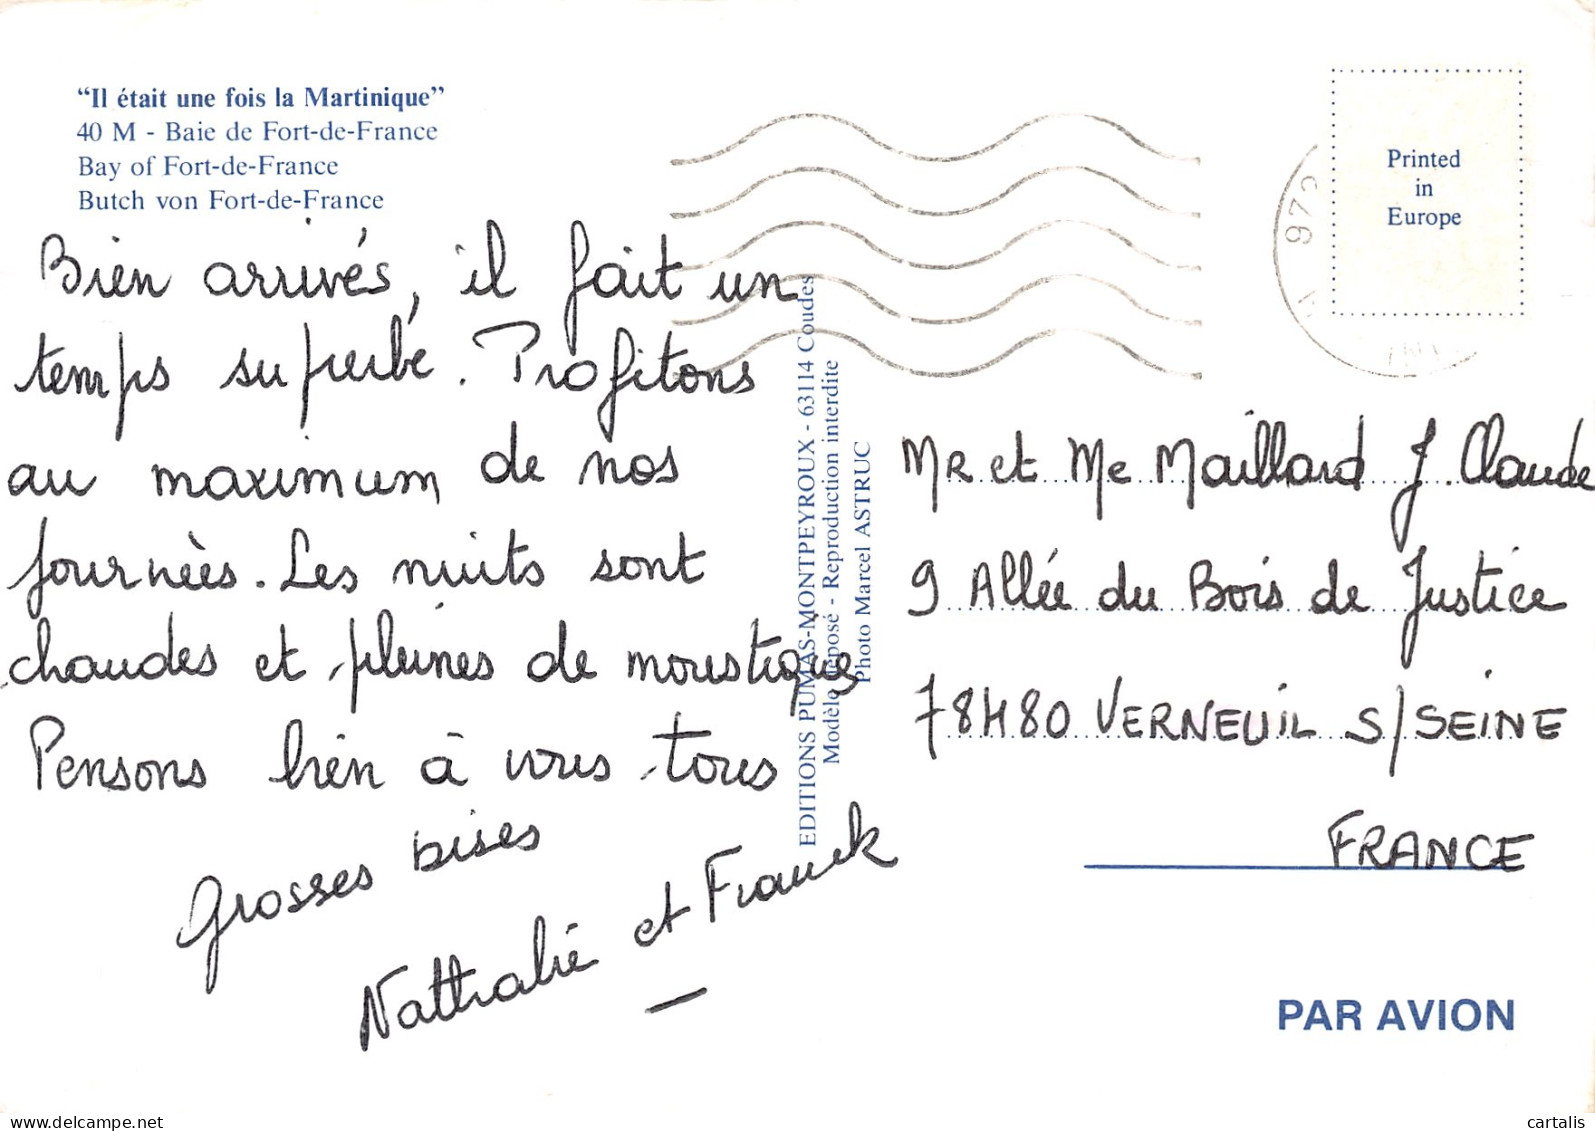 "Il était une fois la Martinique"
40 M - Baie de Fort-de-France
Bay of Fort-de-France
Butch von Fort-de-France
Bien arrivés, il fait un
temps superbe. Profitons
au maximum de nos
journèes. Les nuits sont
chaudes et pleines de moustiques
Pensons bien à vous tous
Grosses bises
Nathalie et Franck
EDITIONS PUMAS-MONTPEYROUX - 63114 Coudes
Modèle déposé - Reproduction interdite
Photo Marcel ASTRUC
Printed
in
Europe
972
MR et Me Maillard J. Claude
9 Allée du Bois de Justice
78480 VERNEUIL S/SEINE
FRANCE
PAR AVION
delcampe.net
cartalis